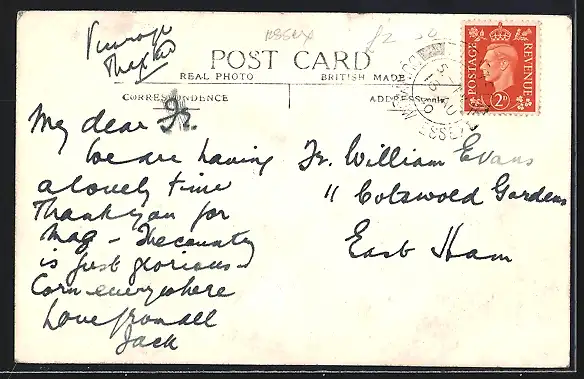 Vicarage
Thaxted
ESSEX
£2
POST CARD
REAL PHOTO BRITISH MADE
CORRESPONDENCE
ADDRESS
POSTAGE
REVENUE
2D
ESSEX
My dear Fr.
We are having
a lovely time
Thank you for
Mag – The country
is just glorious –
Corn everywhere
Love from all
Jack
Fr. William Evans
11 Cotswold Gardens
East Ham